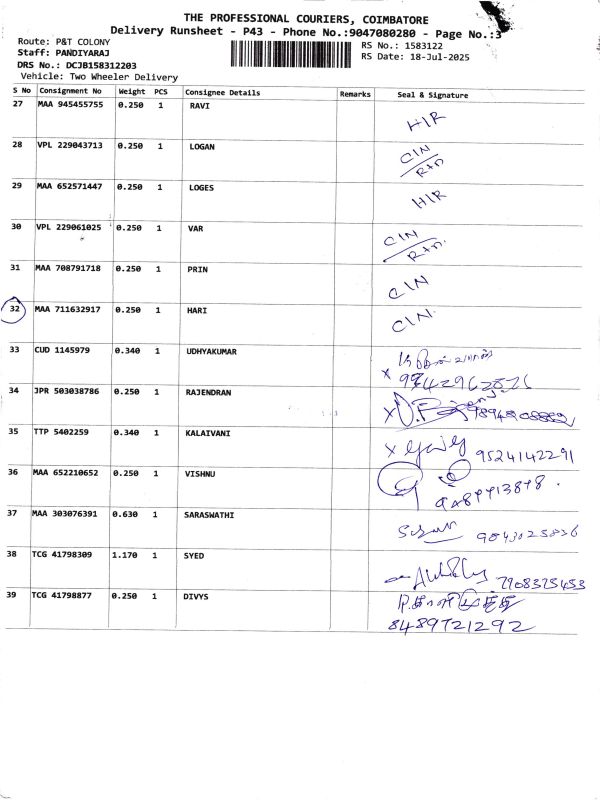 THE PROFESSIONAL COURIERS, COIMBATORE
Delivery Runsheet - P43 - Phone No.:9047080280 - Page No.:3
Route: P&T COLONY
RS No.: 1583122
Staff: PANDIYARAJ
RS Date: 18-Jul-2025
DRS No.: DCJB158312203
Vehicle: Two Wheeler Delivery
S No Consignment No Weight PCS Consignee Details Remarks Seal & Signature
27 MAA 945455755 0.250 1 RAVI H/R
28 VPL 229043713 0.250 1 LOGAN C/N
29 MAA 652571447 0.250 1 LOGES H/R
30 VPL 229061025 0.250 1 VAR C/N
31 MAA 708791718 0.250 1 PRIN C/N
32 MAA 711632917 0.250 1 HARI C/N
33 CUD 1145979 0.340 1 UDHYAKUMAR
34 JPR 503038786 0.250 1 RAJENDRAN
35 TTP 5402259 0.340 1 KALAIVANI 9524142291
36 MAA 652210652 0.250 1 VISHNU
37 MAA 303076391 0.630 1 SARASWATHI
38 TCG 41798309 1.170 1 SYED 7908325453
39 TCG 41798877 0.250 1 DIVYS
8489721292